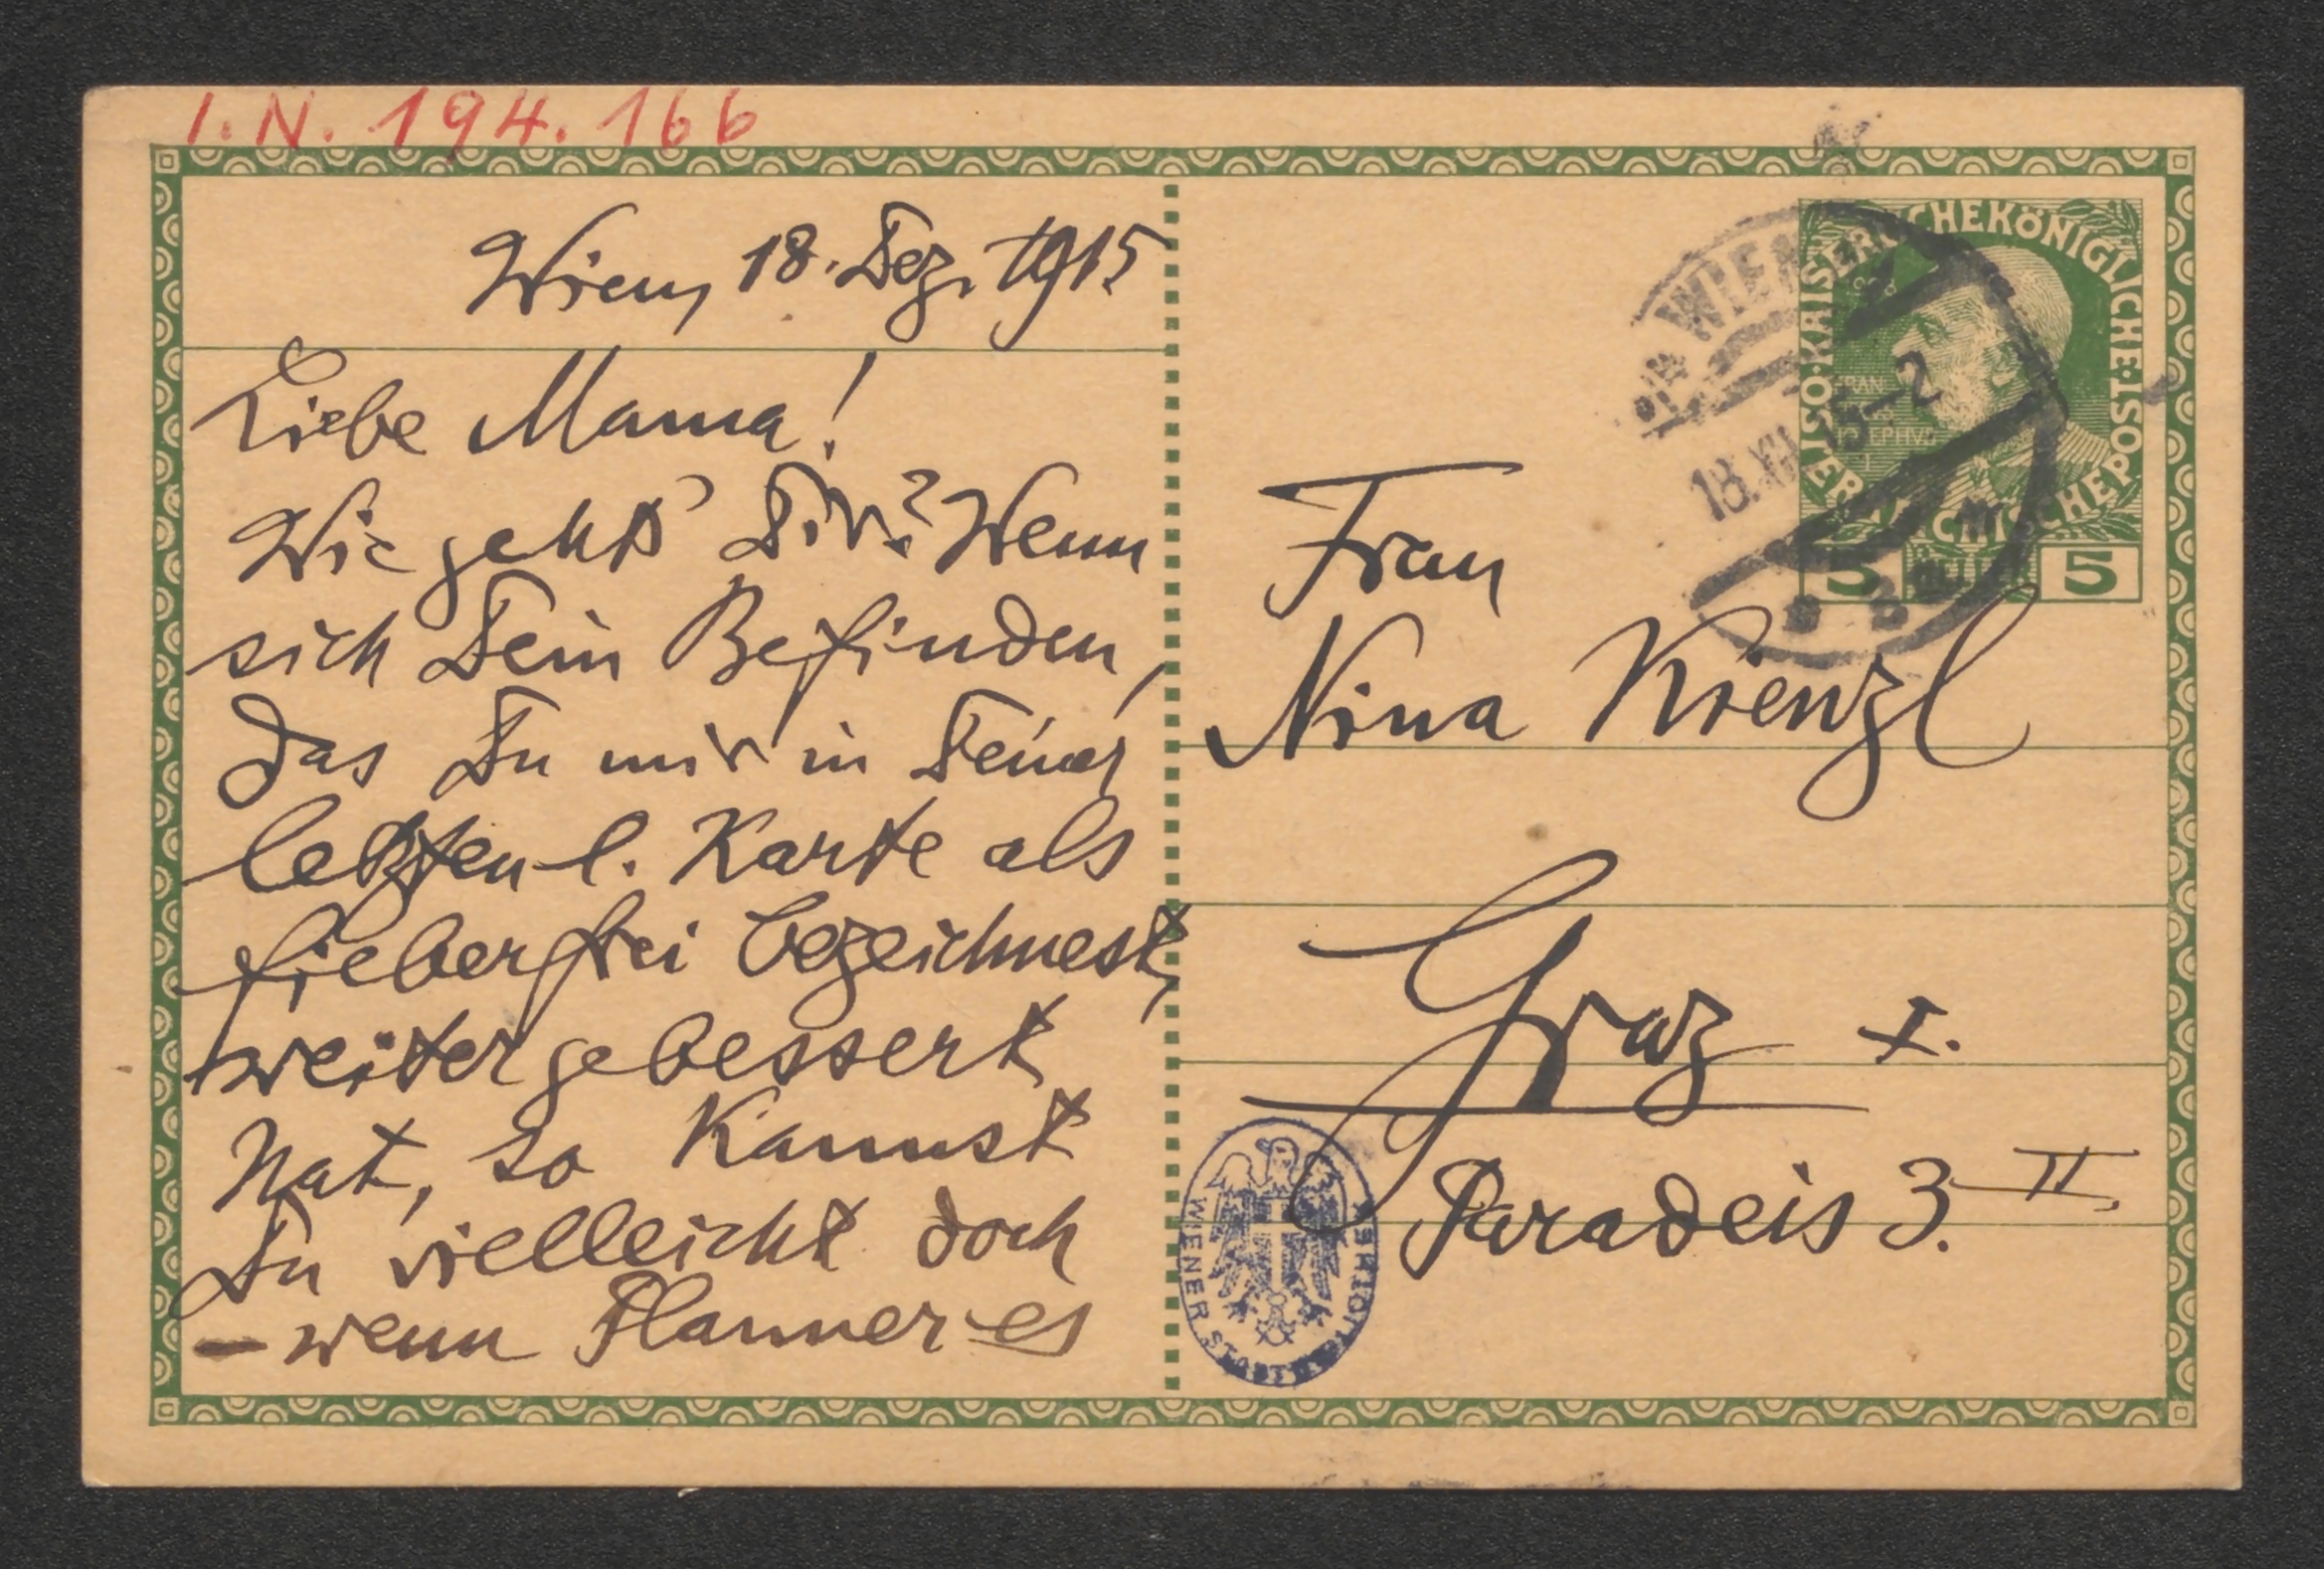 I. N. 194.166
Wien, 18. Dez. 1915
Liebe Mama!
Wie geht's Dir? Wenn
sich Dein Befinden,
das Du mir in Deiner
letzten l. Karte als
fieberfrei bezeichnest,
weiter gebessert
hat, so kannst
Du vielleicht doch
— wenn Planner es
KAISERLICHE KÖNIGLICHE ÖSTERREICHISCHE POST
5 HELLER 5
WIEN
18.XII.15-2
Frau
Nina Kienzl
Graz I.
Paradeis 3. II.
WIENER STADTBIBLIOTHEK